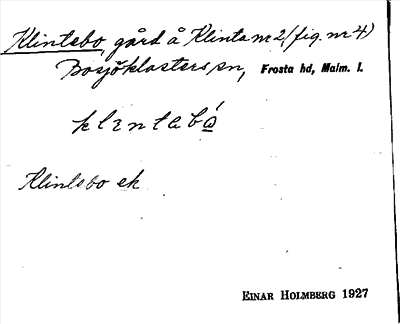 Klintebo, gård å Klinta nr 2 (fig. nr 4)
Bosjöklosters sn, Frosta hd, Malm. l.
klintebó
Klintebo ek
EINAR HOLMBERG 1927